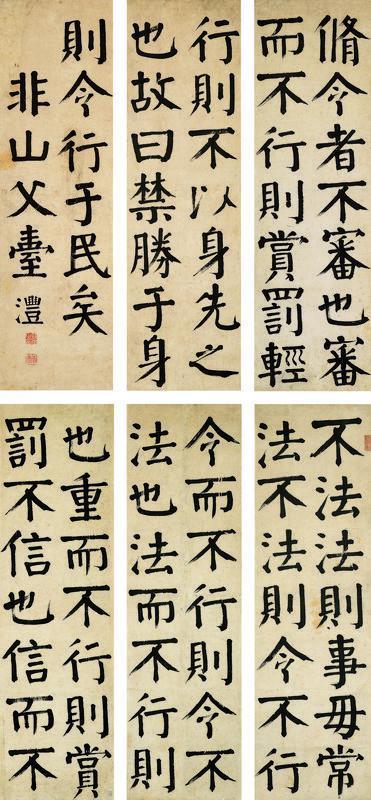 不法法則事毋常
法不法則令不行
令而不行則令不
法也法而不行則
脩令者不審也審
而不行則賞罰輕
也重而不行則賞
罰不信也信而不
行則不以身先之
也故曰禁勝于身
則令行于民矣
非山父臺 灃